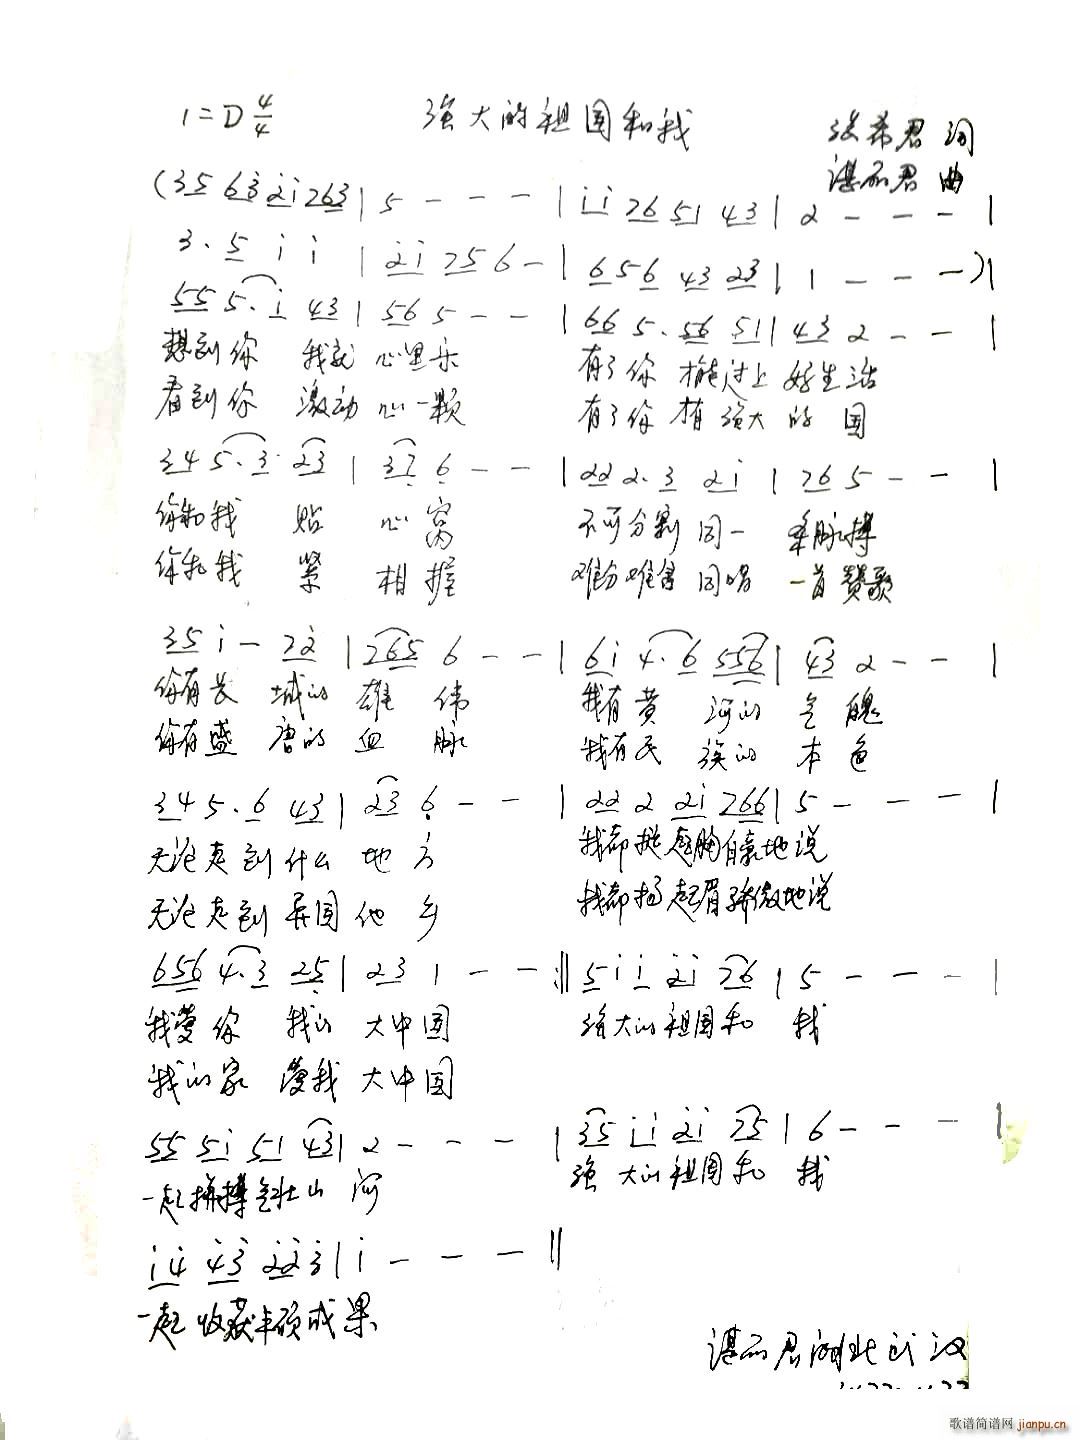 1=D 4/4 强大的祖国和我
张希君 词
湛丽君 曲
(35 63 2i 763 | 5 - - - | ii 76 51 43 | 2 - - - |
3. 5 i i | 2i 75 6 - | 656 43 23 | 1 - - -) |
55 5. i 43 | 56 5 - - | 66 5. 56 51 | 43 2 - - |
想到你 我就 心里乐 有了你 才能过上 好生活
看到你 激动 心一颗 有了你 才有强大 的 国
34 5. 3 23 | 37 6 - - | 22 2. 3 2i | 76 5 - - |
你和我 贴 心窝 不可分割 同一 条脉搏
你和我 紧 相握 难分难舍 同唱 一首赞歌
35 i - 72 | 765 6 - - | 6i 4. 6 556 | 43 2 - - |
你有长 城的 雄 伟 我有黄 河的 气 魄
你有盛 唐的 血 脉 我有民 族的 本 色
34 5. 6 43 | 23 6 - - | 22 2 2i 766 | 5 - - - |
无论走到什么 地 方 我都挺起胸自豪地说
无论走到异国他 乡 我都扬起眉骄傲地说
656 4. 3 25 | 23 1 - - :‖ 5i i 2i 76 | 5 - - - |
我爱你 我的 大中国 强大的祖国和 我
我的家 爱我 大中国
55 5i 51 43 | 2 - - - | 35 ii 2i 75 | 6 - - - |
一起拼搏气壮山 河 强 大的祖国和 我
i4 43 223 | i - - - ‖
一起 收获丰硕成 果
湛丽君湖北武汉
歌谱简谱网 jianpu.cn